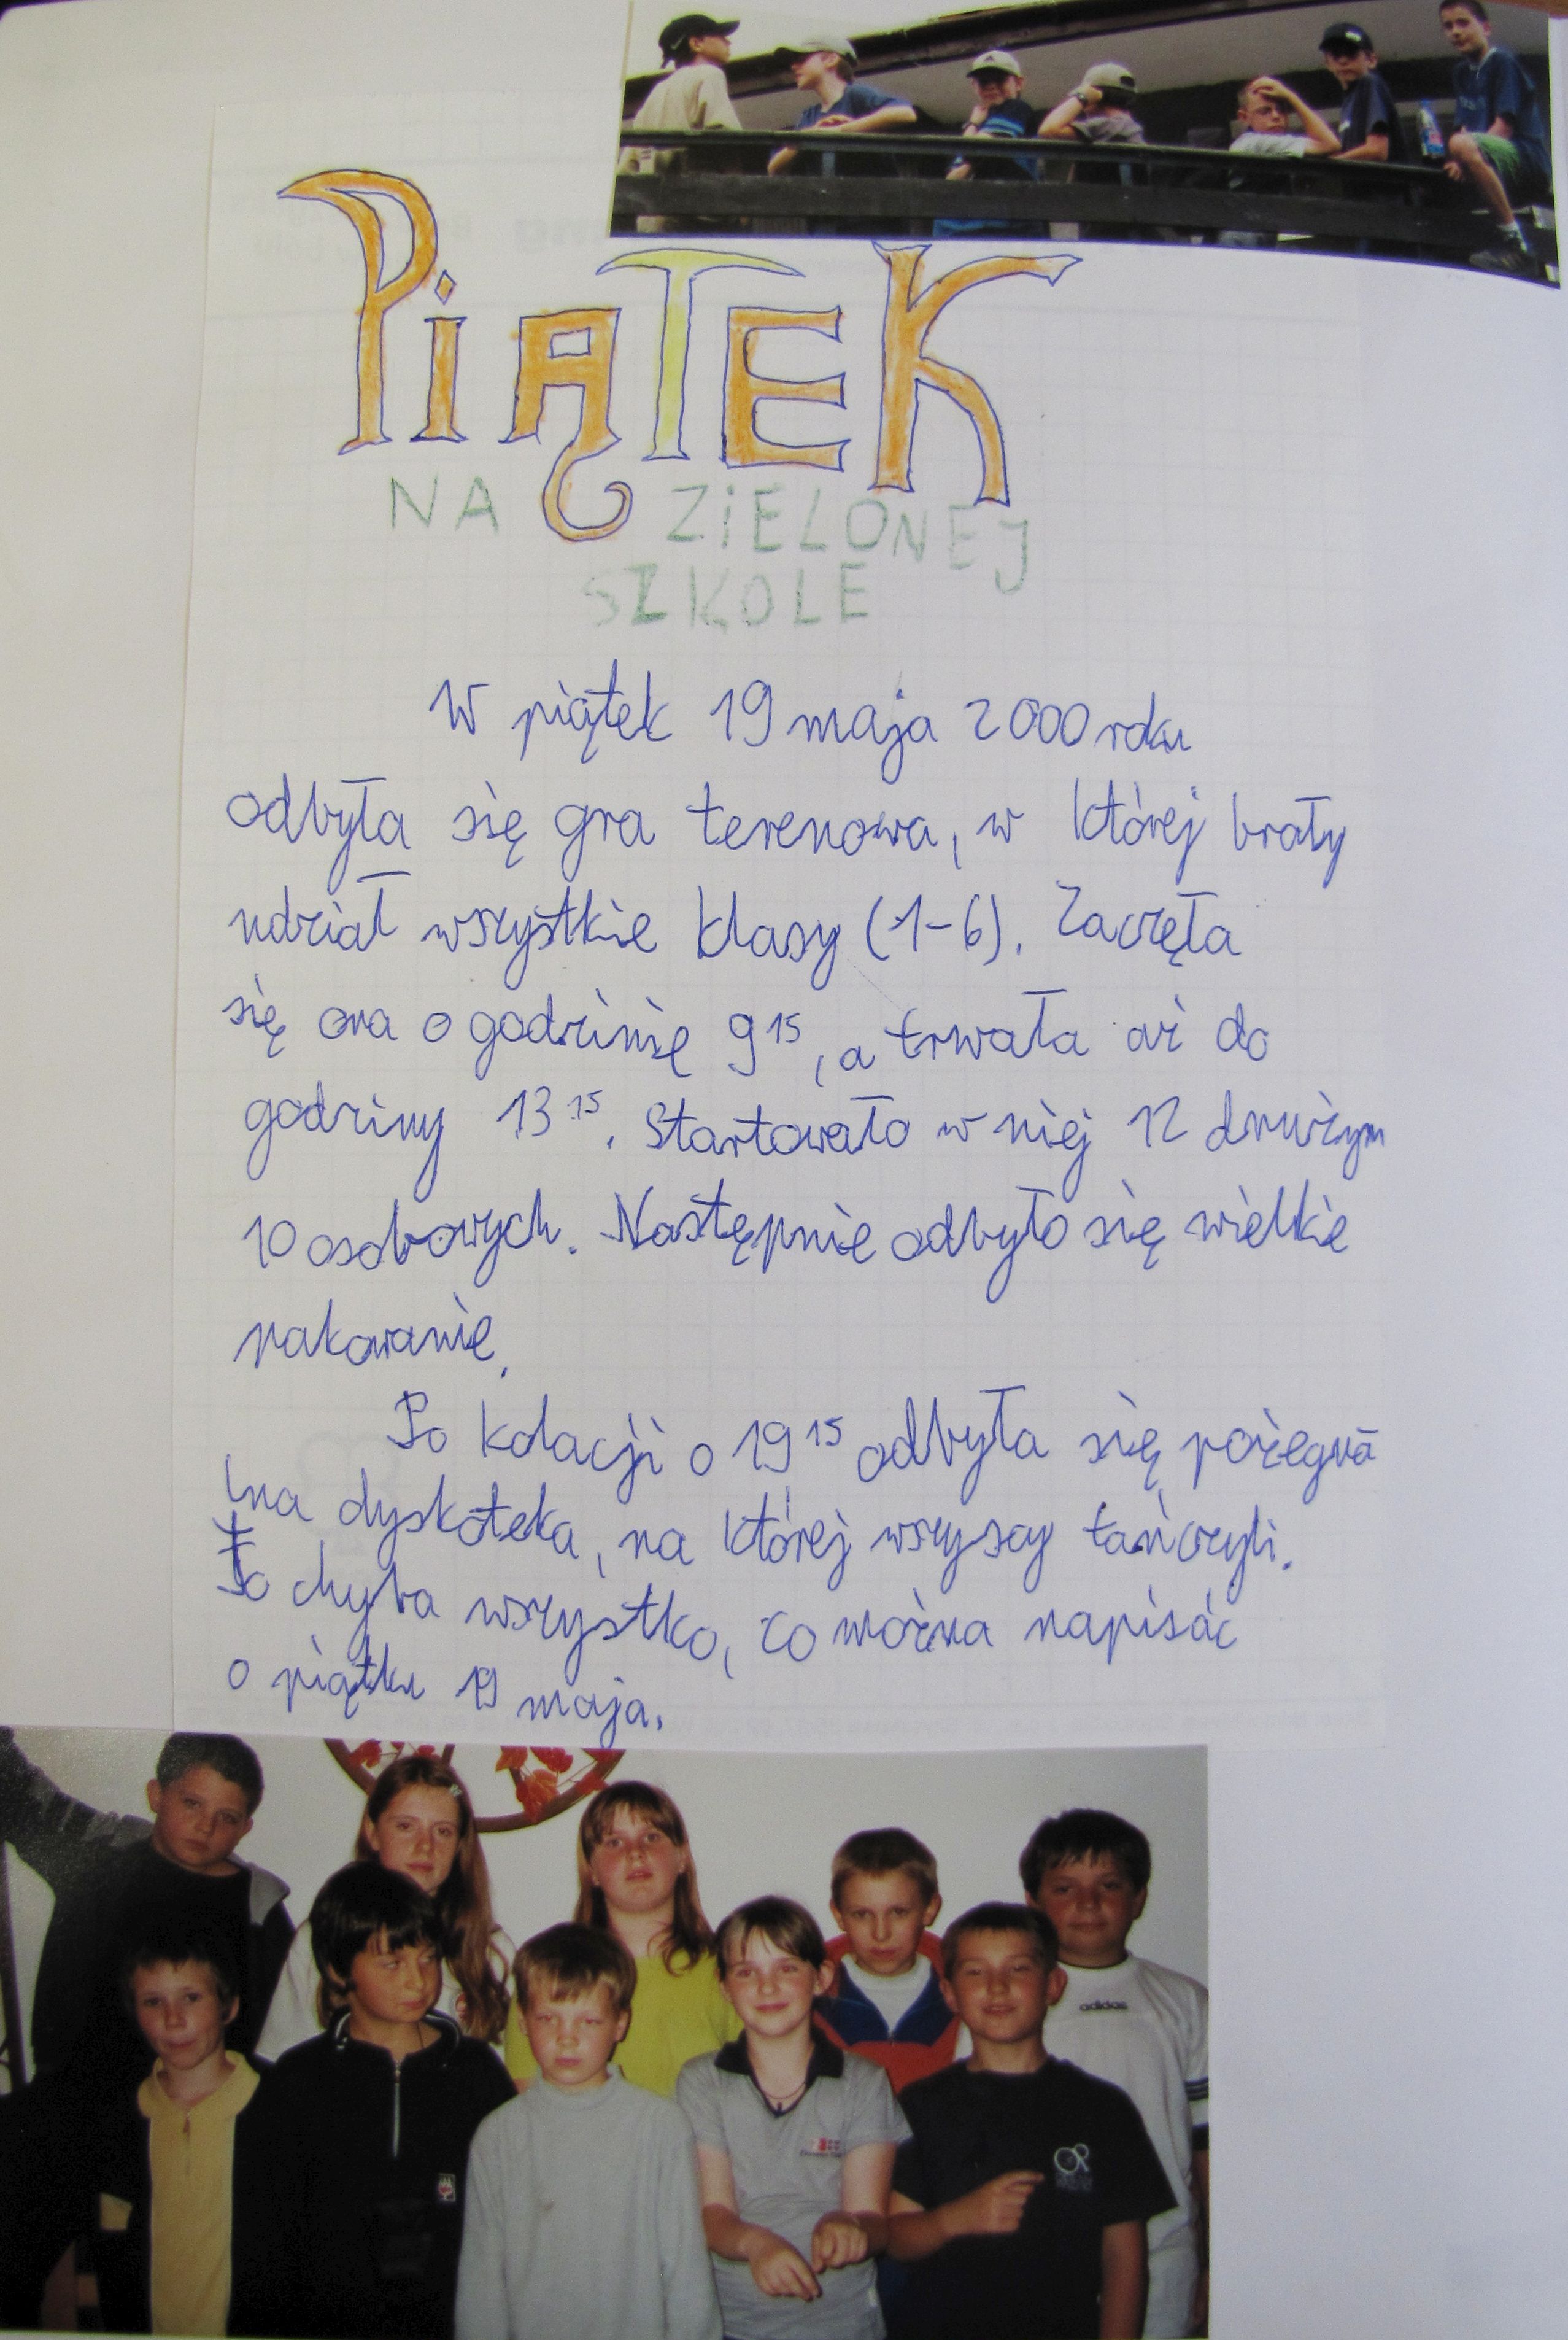 PIĄTEK
NA ZIELONEJ
SZKOLE
W piątek 19 maja 2000 roku
odbyła się gra terenowa, w której brały
udział wszystkie klasy (1-6). Zaczęła
się ona o godzinie 9 15, a trwała aż do
godziny 13 15. Startowało w niej 12 drużyn
10 osobowych. Następnie odbyło się wielkie
pakowanie.
Po kolacji o 19 15 odbyła się pożegna
lna dyskoteka, na której wszyscy tańczyli.
To chyba wszystko, co można napisać
o piątku 19 maja.
adidas